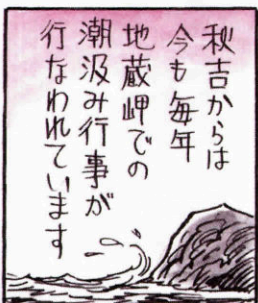 秋吉からは
今も毎年
地蔵岬での
潮汲み行事が
行なわれています